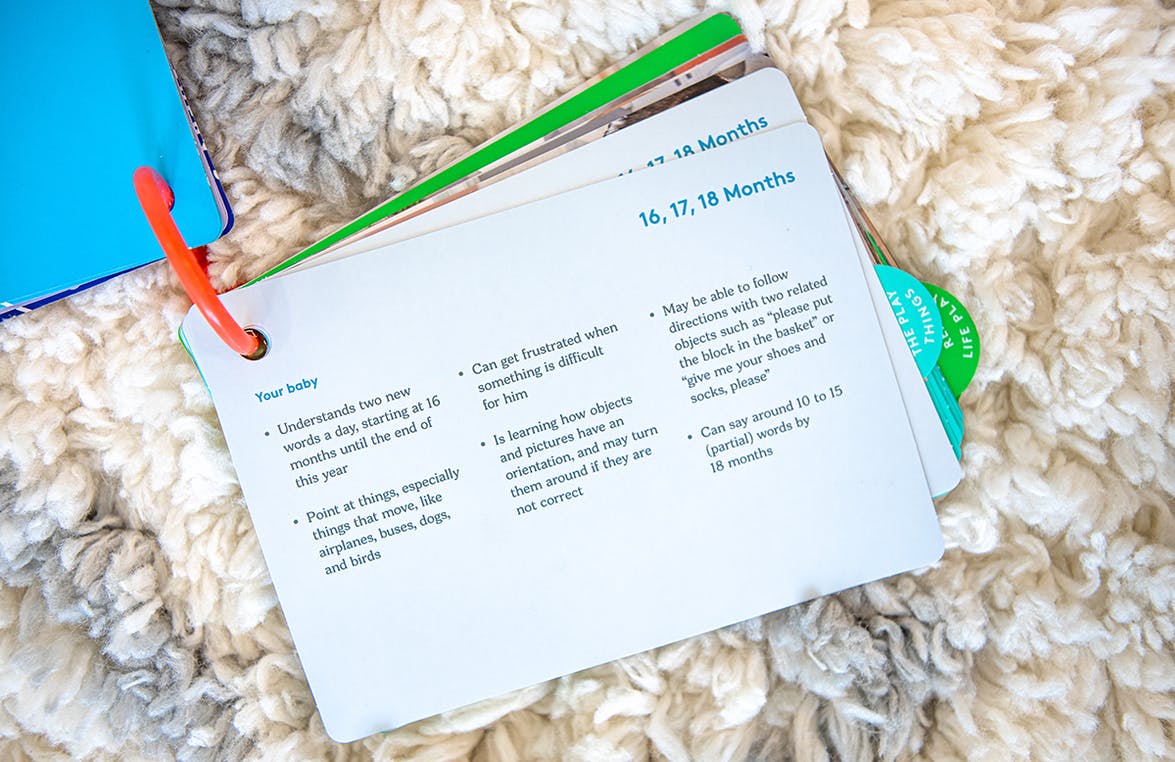 17, 18 Months
16, 17, 18 Months
Your baby
• Understands two new
words a day, starting at 16
months until the end of
this year
• Point at things, especially
things that move, like
airplanes, buses, dogs,
and birds
• Can get frustrated when
something is difficult
for him
• Is learning how objects
and pictures have an
orientation, and may turn
them around if they are
not correct
• May be able to follow
directions with two related
objects such as “please put
the block in the basket” or
“give me your shoes and
socks, please”
• Can say around 10 to 15
(partial) words by
18 months
THE PLAY
THINGS
LIFE PLAY